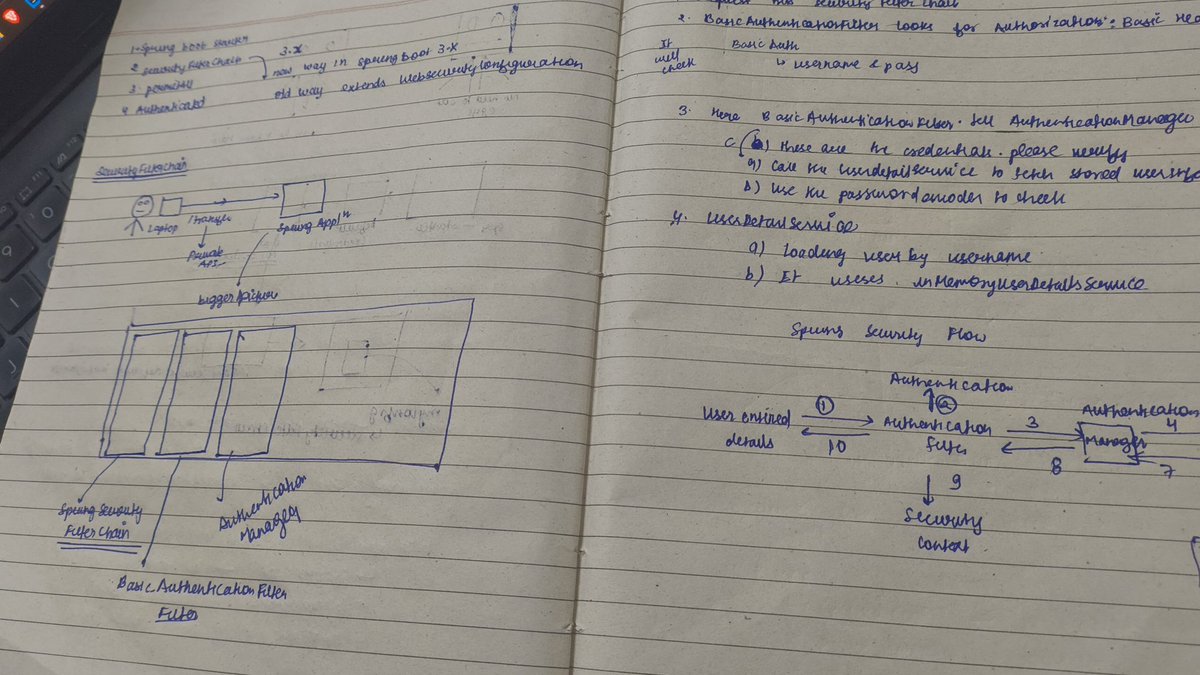 1. Spring boot starter
2 Security Filter Chain
3. permitAll
4 Authenticated
3.x
new way in spring boot 3.x
old way extends WebSecurityConfiguration
Security Filter Chain
Laptop
Spring Appl^n
Private
API
bigger picture
Spring Security
Filter Chain
Authentication
Manager
Basic Authentication Filter
Filter
Security Filter Chain
2. Basic Authentication Filter looks for Authorization: Basic
It
will
check
Basic Auth
↳ username & pass
3. Here Basic Authentication Filter. tell Authentication Manager
c (b) these are the credentials. please verify
a) Call the userdetailservice to fetch stored user info
b) use the password encoder to check
4. UserDetailService
a) Loading user by username
b) It useses. inMemoryUserDetailsService
Spring Security Flow
Authentication
User entired
details
1
10
2
Authentication
Filter
3
8
Authentication
Manager
4
7
9
Security
Context